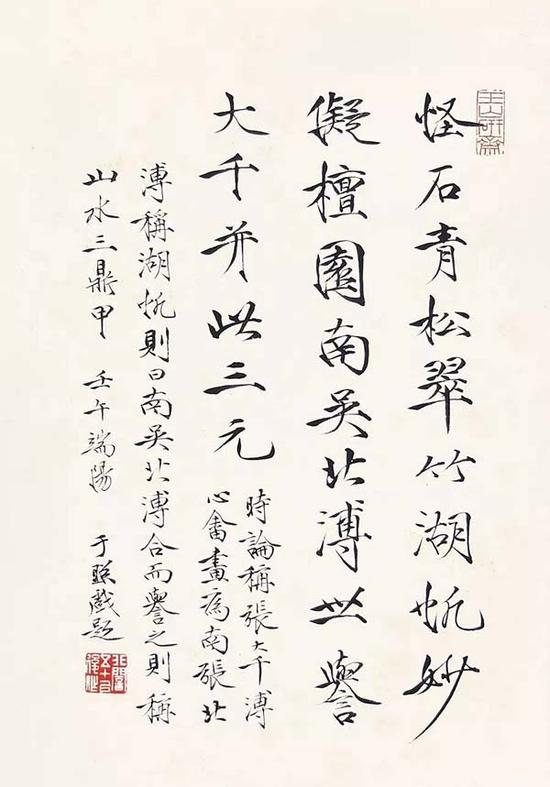 玉山研齋
怪石青松翠竹湖帆妙
儗檀園南吳北溥世譽
大千并此三元
時論稱張大千溥
心畬畫為南張北
溥稱湖帆則曰南吳北溥合而譽之則稱
山水三鼎甲 壬午端陽 于照戲題